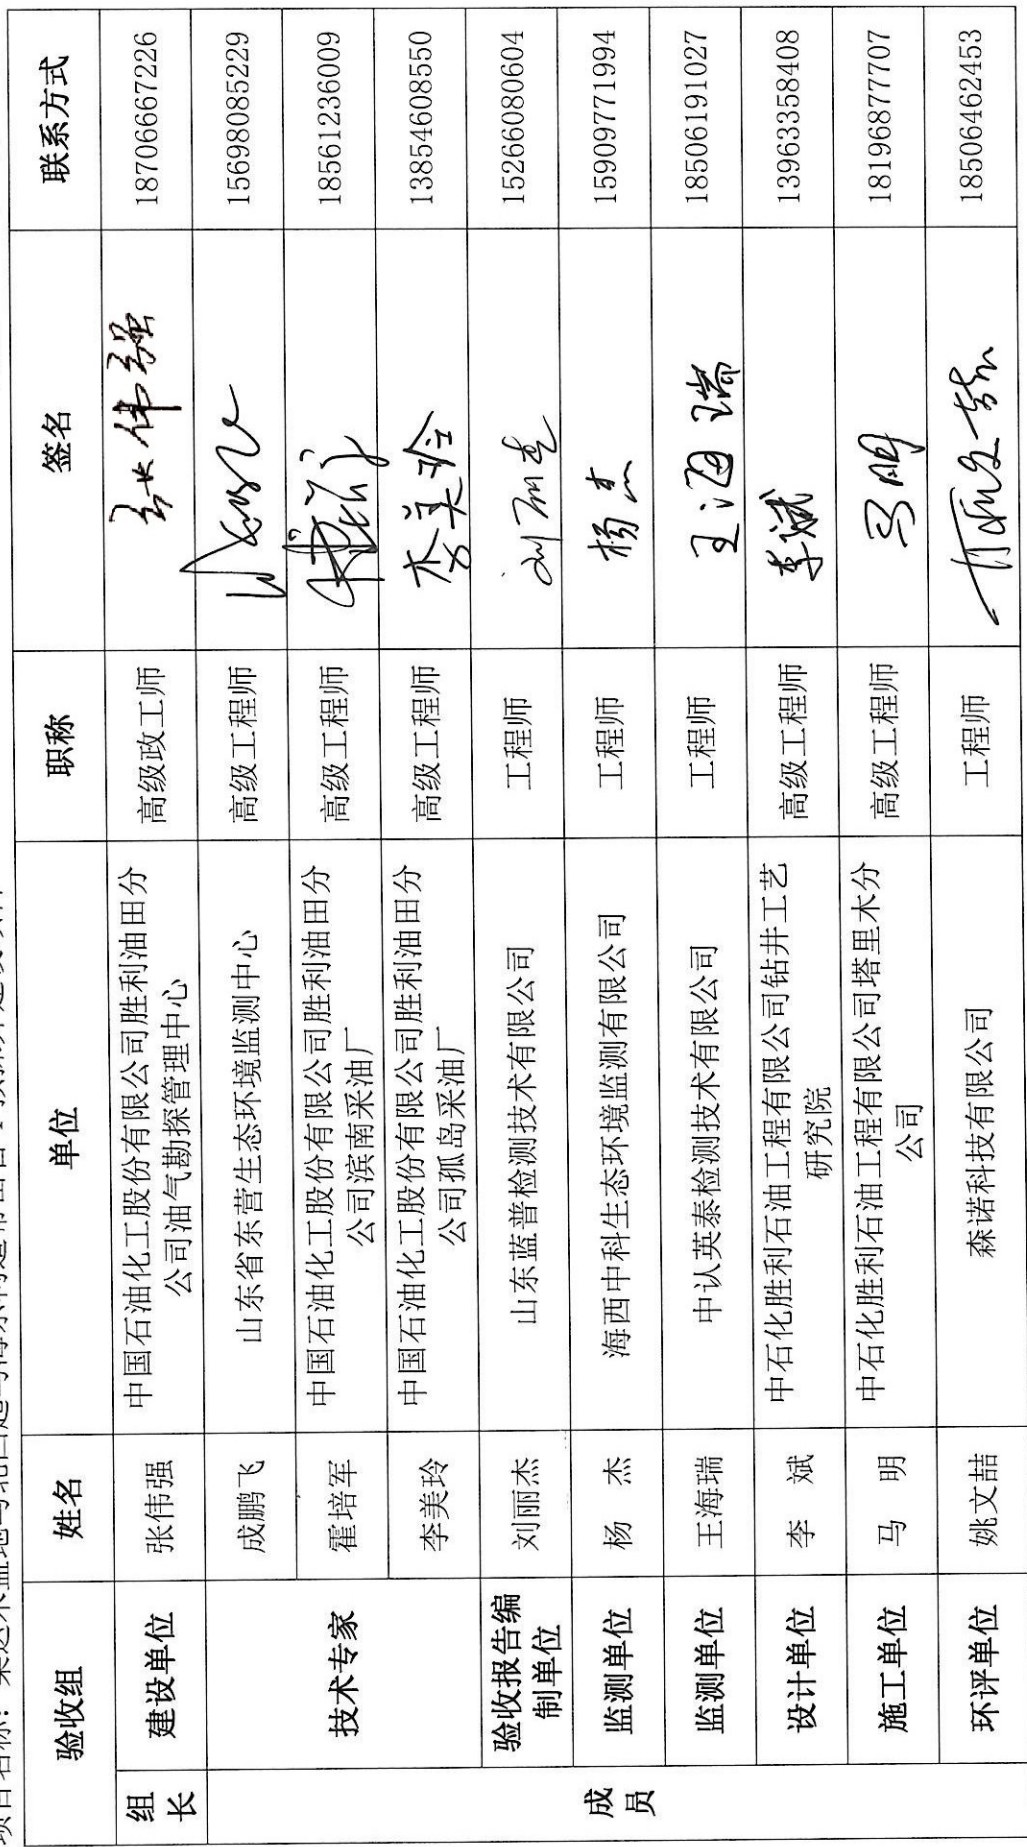 项目名称：柴达木盆地
验收组 姓名 单位 职称 签名 联系方式
组长 建设单位 张伟强 中国石油化工股份有限公司胜利油田分公司油气勘探管理中心 高级政工师 张伟强 18706667226
成员 技术专家 成鹏飞 山东省东营生态环境监测中心 高级工程师 15698085229
霍培军 中国石油化工股份有限公司胜利油田分公司滨南采油厂 高级工程师 18561236009
李美玲 中国石油化工股份有限公司胜利油田分公司孤岛采油厂 高级工程师 李美玲 13854608550
验收报告编制单位 刘丽杰 山东蓝普检测技术有限公司 工程师 刘丽杰 15266080604
监测单位 杨 杰 海西中科生态环境监测有限公司 工程师 杨杰 15909771994
监测单位 王海瑞 中认英泰检测技术有限公司 工程师 王海瑞 18506191027
设计单位 李 斌 中石化胜利石油工程有限公司钻井工艺研究院 高级工程师 李斌 13963358408
施工单位 马 明 中石化胜利石油工程有限公司塔里木分公司 高级工程师 马明 18196877707
环评单位 姚文喆 森诺科技有限公司 工程师 18506462453